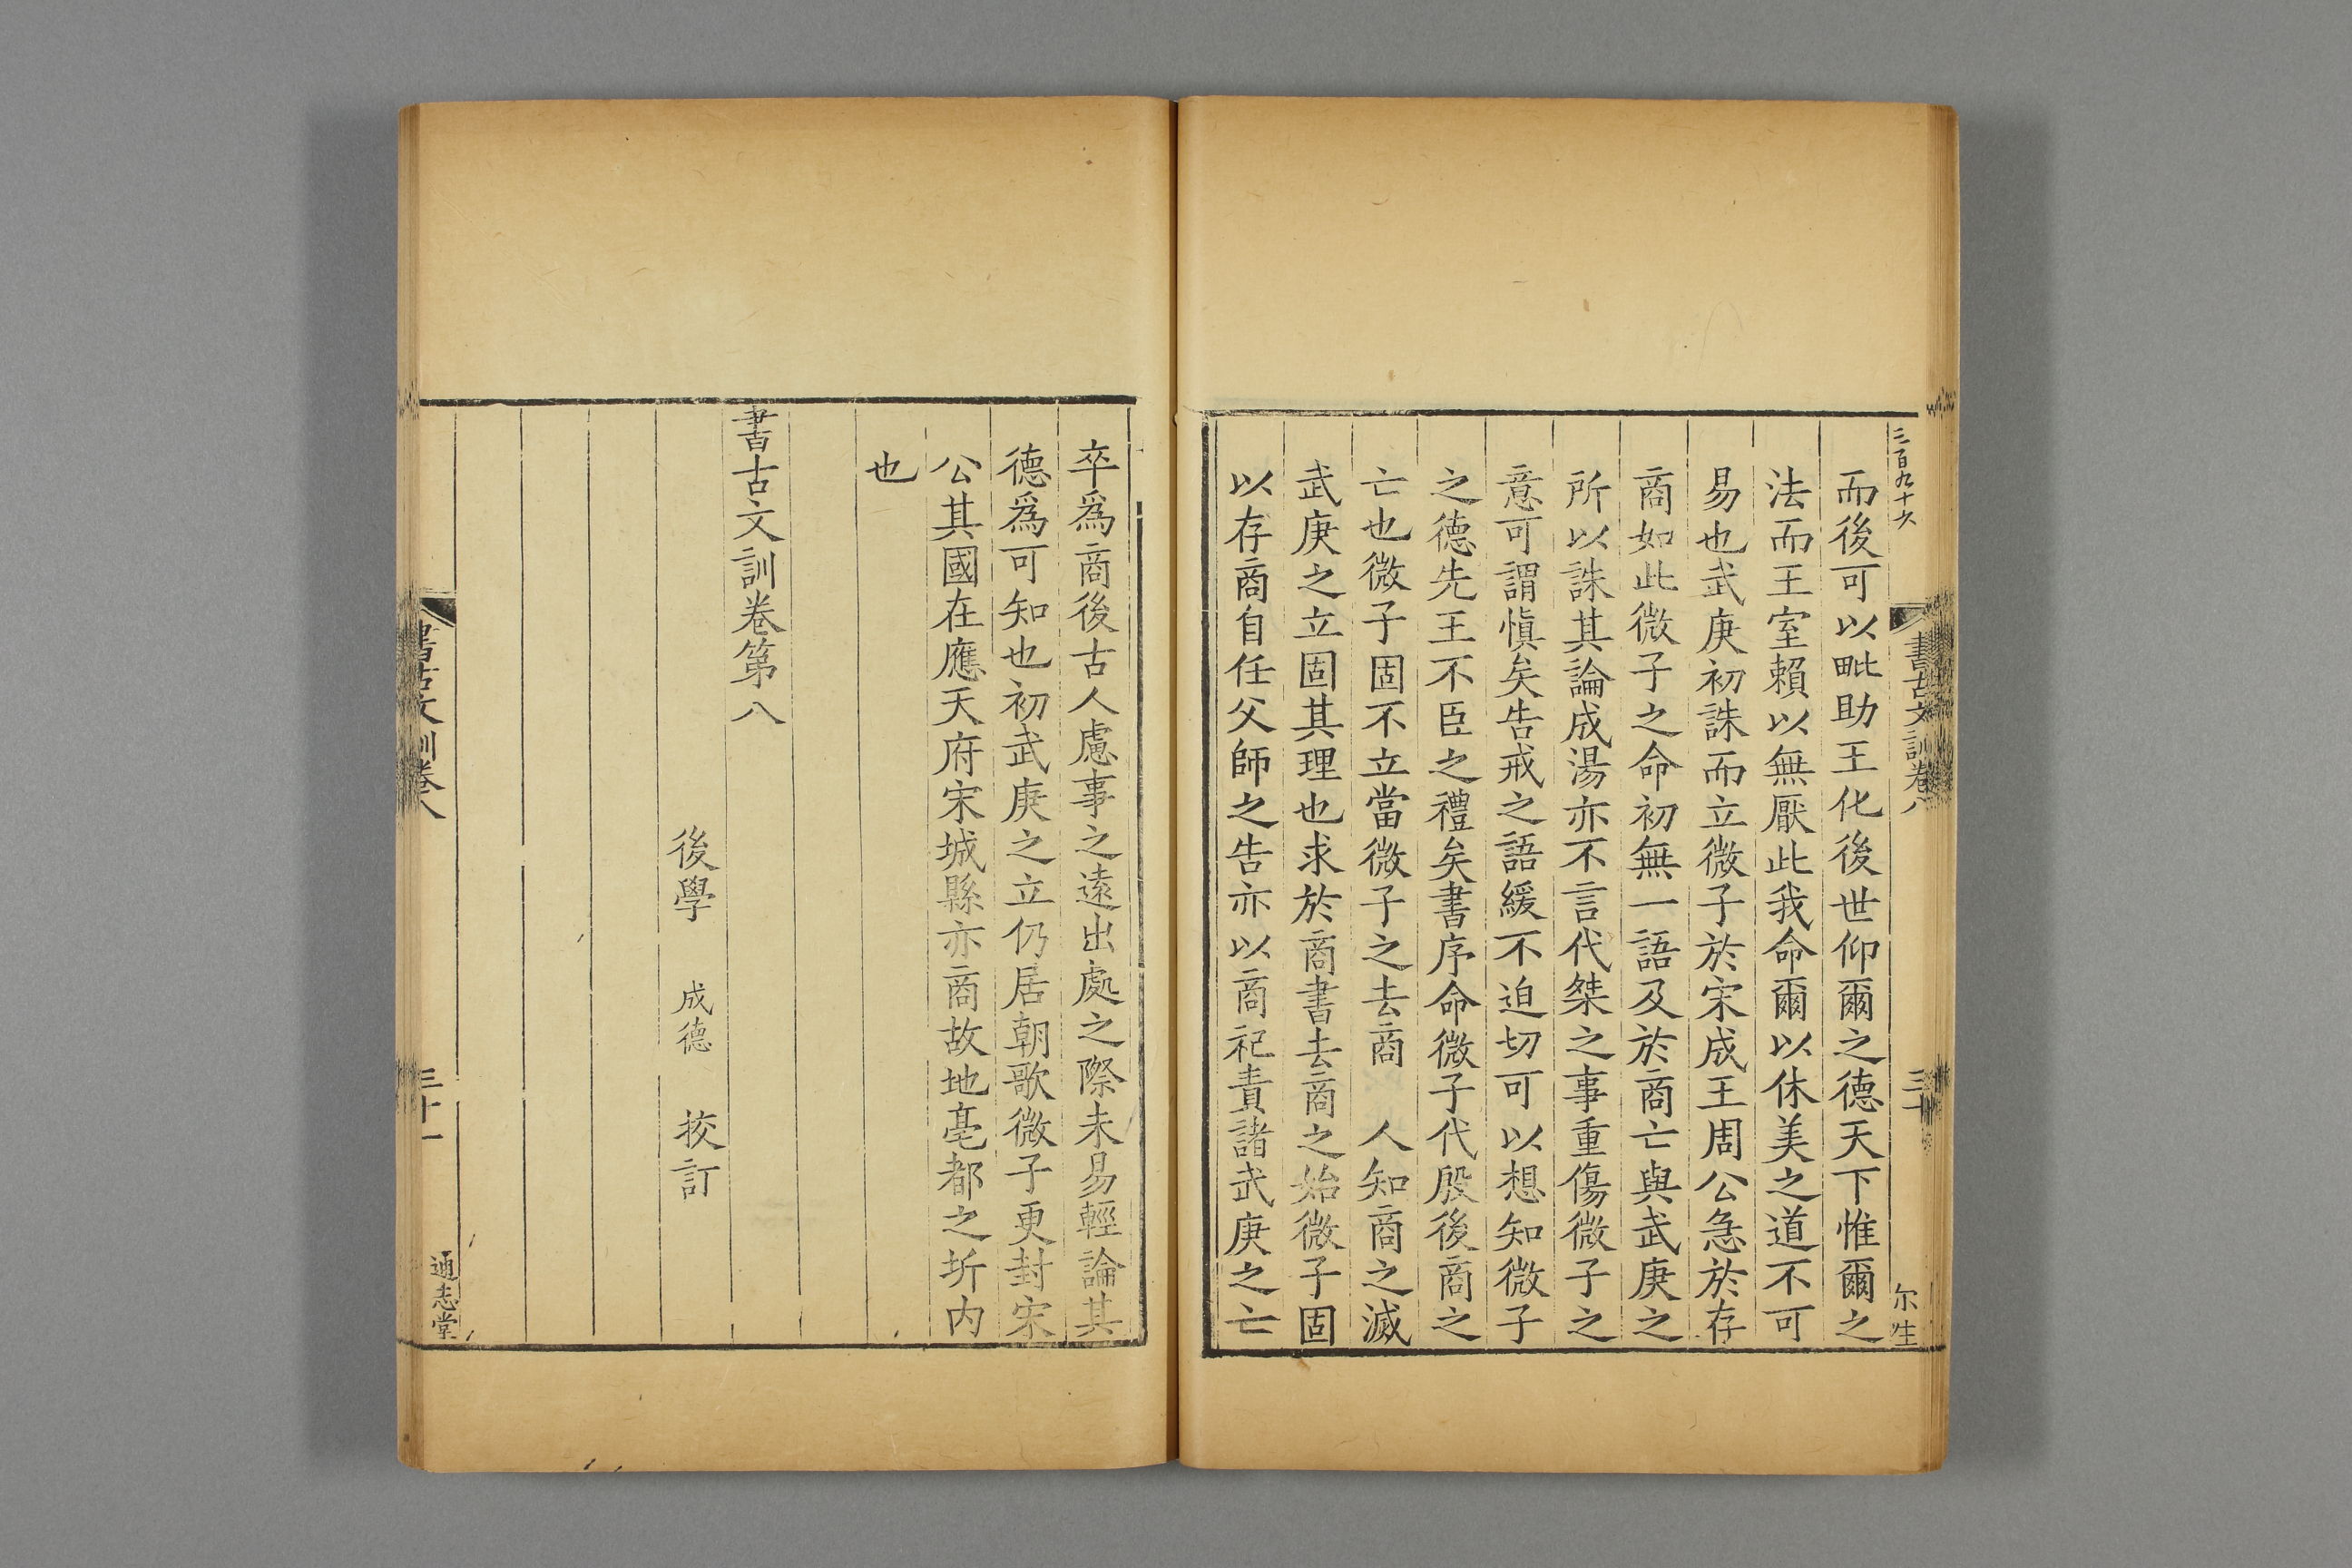 三百九十六
書古文訓卷八
三十
尓生
而後可以毗助王化後世仰爾之德天下惟爾之
法而王室賴以無厭此我命爾以休美之道不可
易也武庚初誅而立微子於宋成王周公急於存
商如此微子之命初無一語及於商亡與武庚之
所以誅其論成湯亦不言代桀之事重傷微子之
意可謂慎矣告戒之語緩不迫切可以想知微子
之德先王不臣之禮矣書序命微子代殷後商之
亡也微子固不立當微子之去商 人知商之滅
武庚之立固其理也求於商書去商之始微子固
以存商自任父師之告亦以商祀責諸武庚之亡
卒爲商後古人慮事之遠出處之際未易輕論其
德爲可知也初武庚之立仍居朝歌微子更封宋
公其國在應天府宋城縣亦商故地亳都之圻内
也
書古文訓卷第八
後學 成德 挍訂
書古文訓卷八
三十一
通志堂